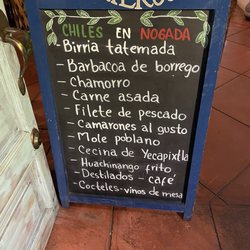 CHILES EN NOGADA
Birria tatemada
- Barbacoa de borrego
- Chamorro
- Carne asada
- Filete de pescado
- Camarones al gusto
- Mole poblano
- Cecina de Yecapixtla
- Huachinango frito
- Destilados - café
- Cocteles - vinos de mesa